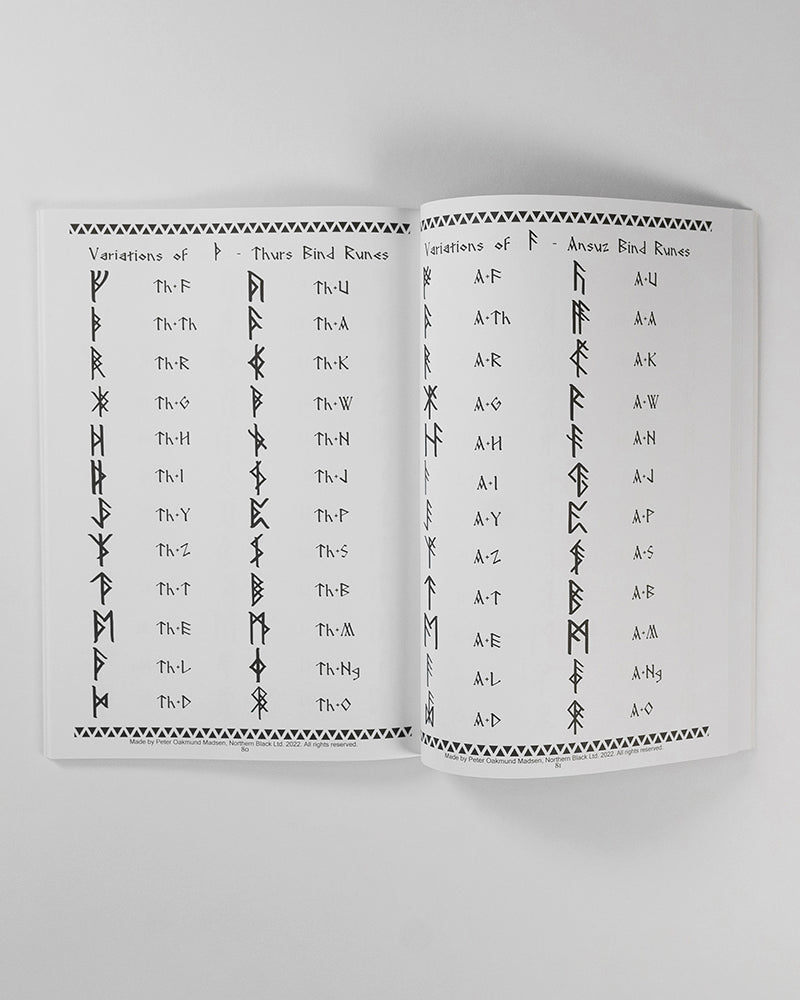 Variations of ᚦ - Thurs Bind Runes
Th·F Th·U
Th·Th Th·A
Th·R Th·K
Th·G Th·W
Th·H Th·N
Th·I Th·J
Th·Y Th·P
Th·Z Th·S
Th·T Th·B
Th·E Th·M
Th·L Th·Ng
Th·D Th·O
Made by Peter Oakmund Madsen, Northern Black Ltd. 2022. All rights reserved.
80
Variations of ᚨ - Ansuz Bind Runes
A·F A·U
A·Th A·A
A·R A·K
A·G A·W
A·H A·N
A·I A·J
A·Y A·P
A·Z A·S
A·T A·B
A·E A·M
A·L A·Ng
A·D A·O
Made by Peter Oakmund Madsen, Northern Black Ltd. 2022. All rights reserved.
81